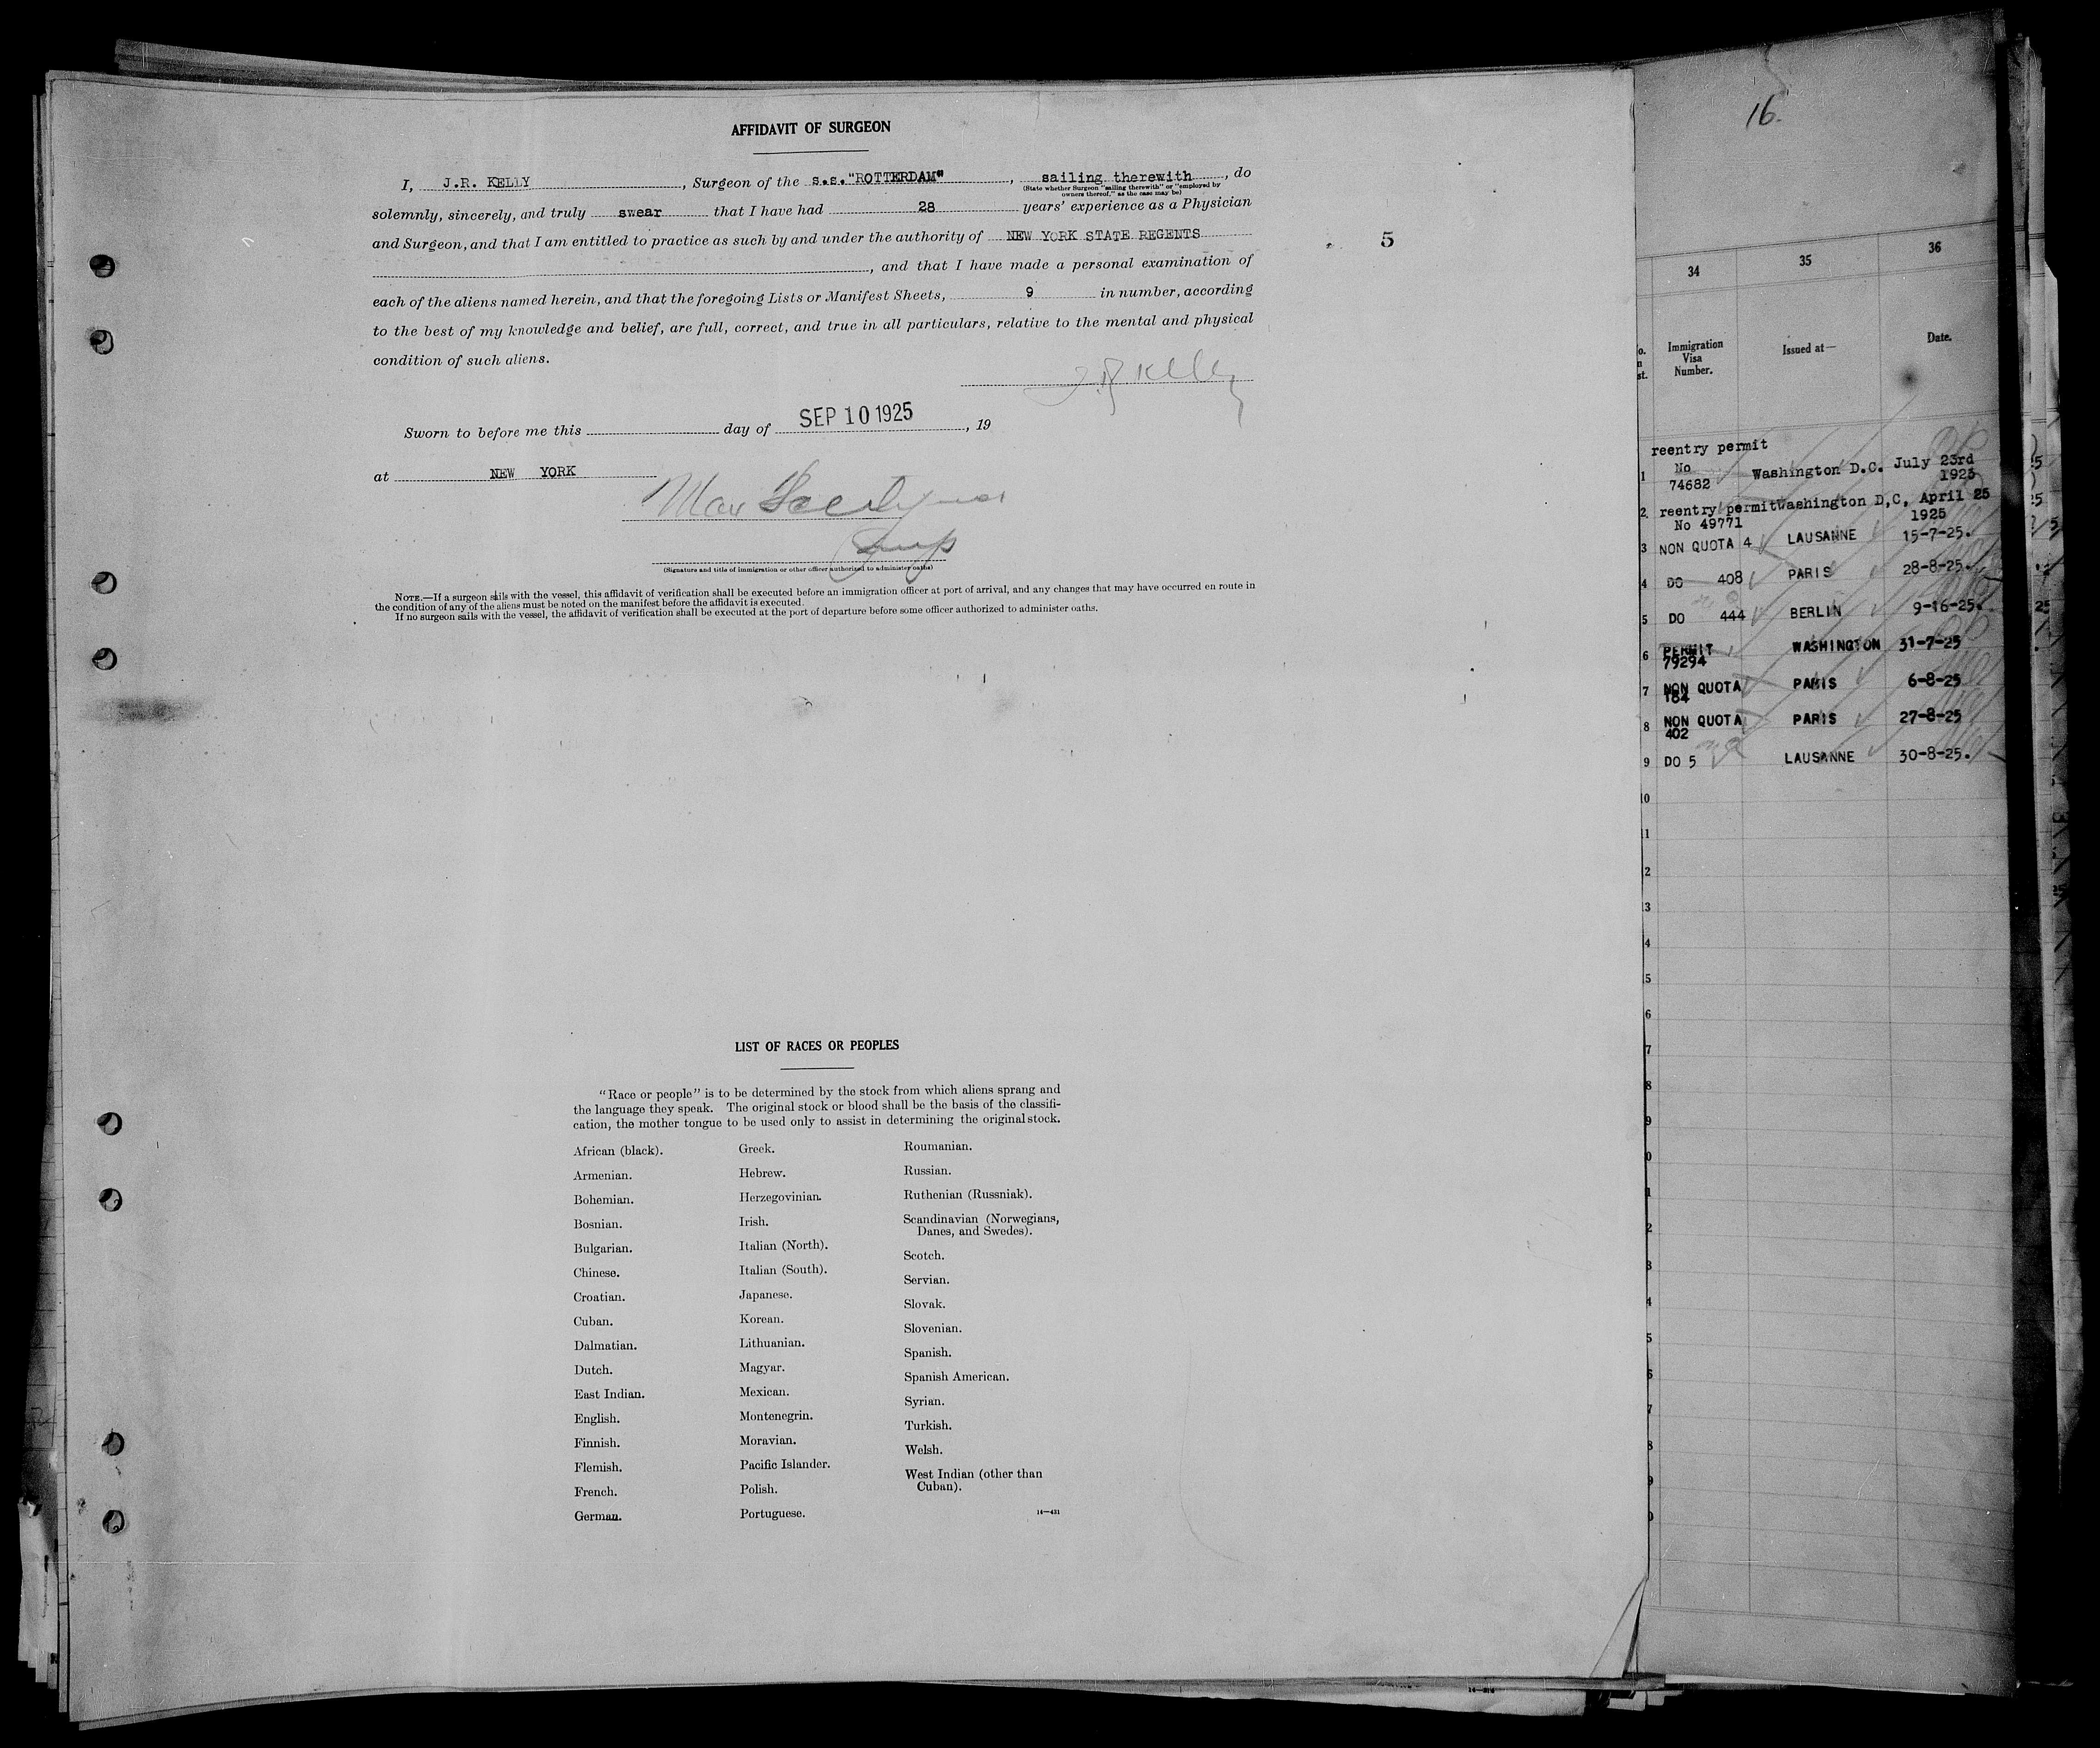 AFFIDAVIT OF SURGEON
I, J.R. KELLY, Surgeon of the s.s."ROTTERDAM", sailing therewith, do
(State whether Surgeon "sailing therewith" or "employed by
owners thereof," as the case may be)
solemnly, sincerely, and truly swear that I have had 28 years' experience as a Physician
and Surgeon, and that I am entitled to practice as such by and under the authority of NEW YORK STATE REGENTS
, and that I have made a personal examination of
each of the aliens named herein, and that the foregoing Lists or Manifest Sheets, 9 in number, according
to the best of my knowledge and belief, are full, correct, and true in all particulars, relative to the mental and physical
condition of such aliens.
J.R. Kelly
Sworn to before me this day of SEP 10 1925, 19
at NEW YORK
Max
(Signature and title of immigration or other officer authorized to administer oaths)
NOTE.—If a surgeon sails with the vessel, this affidavit of verification shall be executed before an immigration officer at port of arrival, and any changes that may have occurred en route in
the condition of any of the aliens must be noted on the manifest before the affidavit is executed.
If no surgeon sails with the vessel, the affidavit of verification shall be executed at the port of departure before some officer authorized to administer oaths.
5
LIST OF RACES OR PEOPLES
"Race or people" is to be determined by the stock from which aliens sprang and
the language they speak. The original stock or blood shall be the basis of the classifi-
cation, the mother tongue to be used only to assist in determining the original stock.
African (black).
Armenian.
Bohemian.
Bosnian.
Bulgarian.
Chinese.
Croatian.
Cuban.
Dalmatian.
Dutch.
East Indian.
English.
Finnish.
Flemish.
French.
German.
Greek.
Hebrew.
Herzegovinian.
Irish.
Italian (North).
Italian (South).
Japanese.
Korean.
Lithuanian.
Magyar.
Mexican.
Montenegrin.
Moravian.
Pacific Islander.
Polish.
Portuguese.
Roumanian.
Russian.
Ruthenian (Russniak).
Scandinavian (Norwegians,
Danes, and Swedes).
Scotch.
Servian.
Slovak.
Slovenian.
Spanish.
Spanish American.
Syrian.
Turkish.
Welsh.
West Indian (other than
Cuban).
14—431
16.
34 35 36
Immigration
Visa
Number.
Issued at—
Date.
reentry permit
1 No 74682 Washington D.C. July 23rd 1925
2 reentry permit Washington D,C, April 25
No 49771 1925
3 NON QUOTA 4 LAUSANNE 15-7-25.
4 DO 408 PARIS 28-8-25.
5 DO 444 BERLIN 9-16-25.
6 PERMIT 79294 WASHINGTON 31-7-25
7 NON QUOTA 184 PARIS 6-8-25
8 NON QUOTA 402 PARIS 27-8-25
9 DO 5 LAUSANNE 30-8-25.
10
11
2
3
4
5
6
7
8
9
0
1
2
3
4
5
6
7
8
9
0